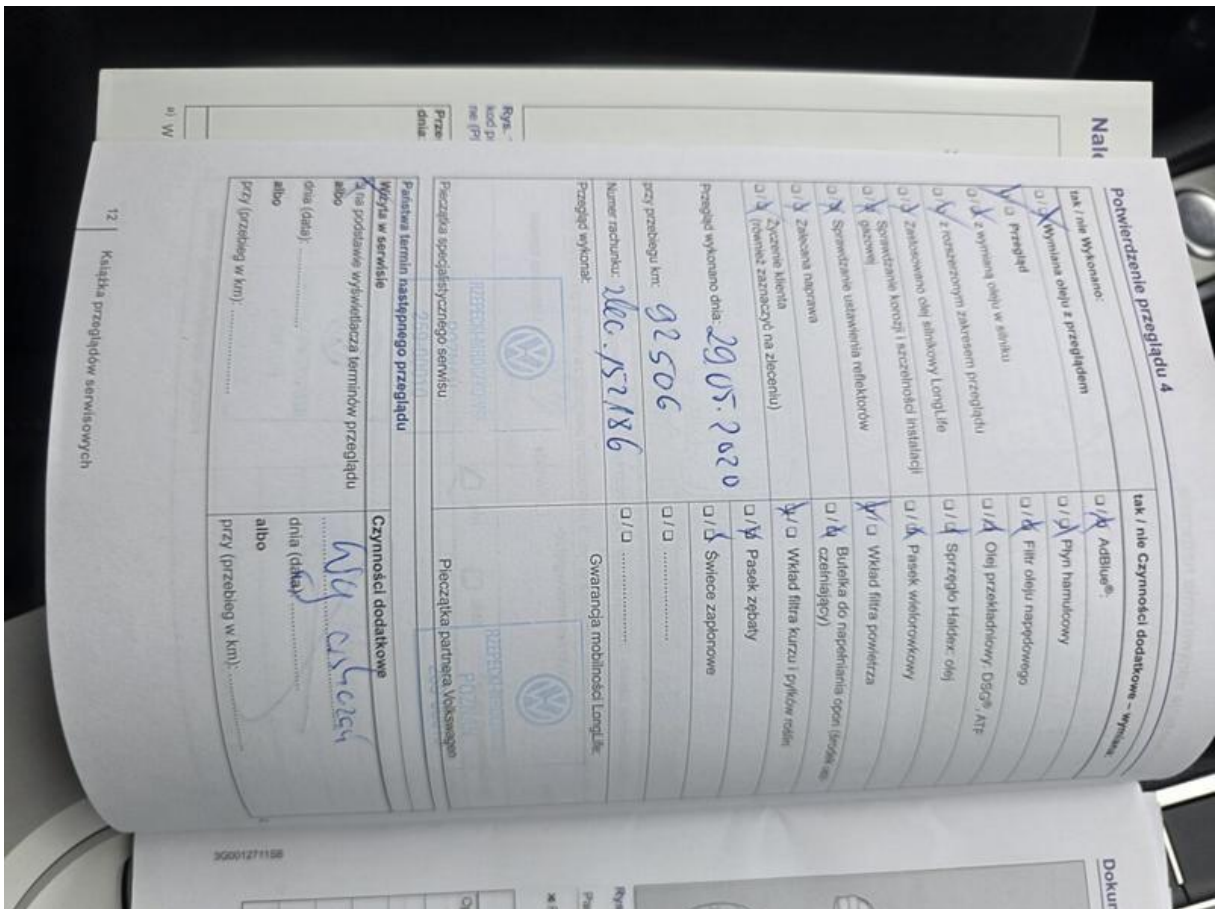 Nale
Potwierdzenie przeglądu 4
tak / nie Wykonano:
□/□ Wymiana oleju z przeglądem
□/□ Przegląd
□/□ z wymianą oleju w silniku
□/□ z rozszerzonym zakresem przeglądu
□/□ Zastosowano olej silnikowy LongLife
□/□ Sprawdzanie korozji i szczelności instalacji
gazowej
□/□ Sprawdzanie ustawienia reflektorów
□/□ Zalecana naprawa
□/□ Życzenie klienta
(również zaznaczyć na zleceniu)
Przegląd wykonano dnia: 29.05.2020
przy przebiegu km: 92506
Numer rachunku: zlec. 152186
Przegląd wykonał:
Pieczątka specjalistycznego serwisu
tak / nie Czynności dodatkowe – wymiana:
□/□ AdBlue®:
□/□ Płyn hamulcowy
□/□ Filtr oleju napędowego
□/□ Olej przekładniowy: DSG®, ATF
□/□ Sprzęgło Haldex: olej
□/□ Pasek wielorowkowy
□/□ Wkład filtra powietrza
□/□ Butelka do napełniania opon (środek us-
zczelniający)
□/□ Wkład filtra kurzu i pyłków roślin
□/□ Pasek zębaty
□/□ Świece zapłonowe
□/□ ....................
□/□ ....................
Gwarancja mobilności LongLife:
Pieczątka partnera Volkswagen
Państwa termin następnego przeglądu
Wizyta w serwisie
na podstawie wyświetlacza terminów przeglądu
albo
dnia (data): ....................
albo
przy (przebieg w km): ....................
Czynności dodatkowe
dnia (data): ....................
albo
przy (przebieg w km): ....................
12 Książka przeglądów serwisowych
Rys.
kod p
ne (P
Prze
dnia:
a) W
3G0012711SB
Dokun
Rys